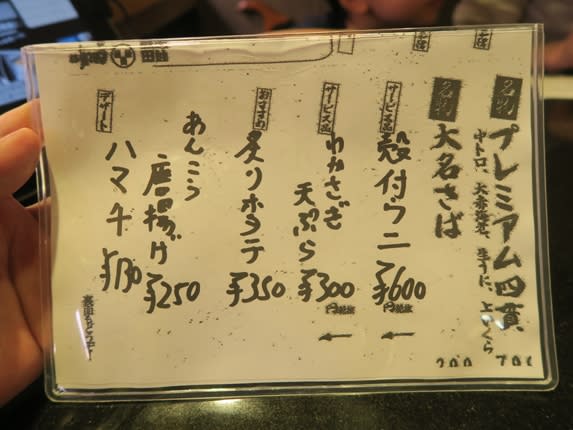 名物
プレミアム四貫
中トロ、大赤海老、生うに、上いくら
名物
大名さば
サービス品
殻付ウニ
¥600
円税抜
サービス品
わかさぎ
天ぷら
¥300
円税抜
おすすめ
炙りホタテ
¥350
あんこう
唐揚げ
¥250
デザート
ハマチ
¥130
裏面もどうぞ